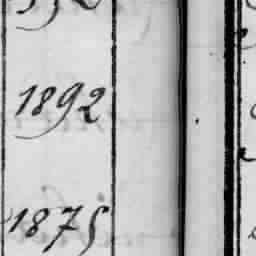 1892
1875